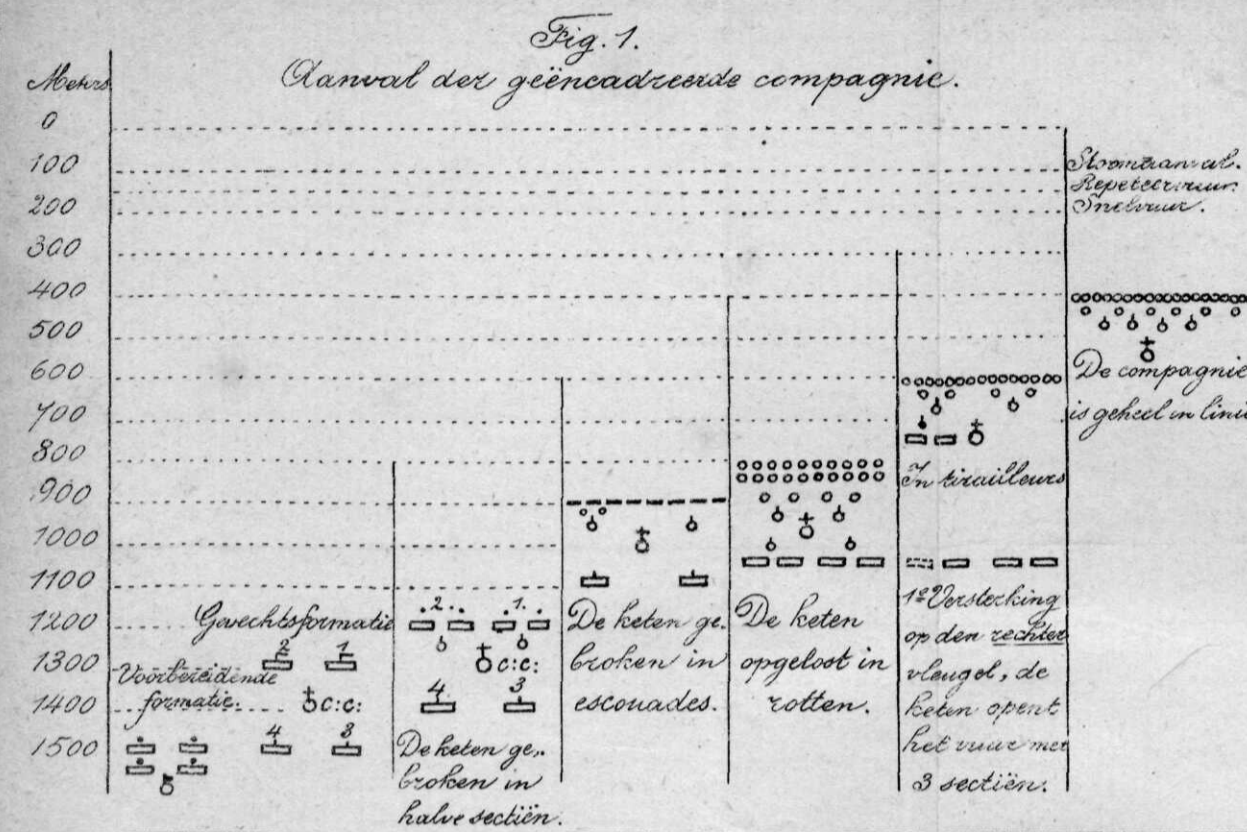 Fig. 1.
Aanval der geëncadreerde compagnie.
Meters
0
100
200
300
400
500
600
700
800
900
1000
1100
1200
1300
1400
1500
Voorbereidende
formatie.
Gevechtsformatie
2 1
c:c:
4 3
.2. .1.
c:c:
4 3
De keten ge-
broken in
halve sectiën.
De keten ge-
broken in
escouades.
De keten
opgelost in
rotten.
In tirailleurs
1e Versterking
op den rechter
vleugel, de
keten opent
het vuur met
3 sectiën.
Stormaanval.
Repeteervuur.
Snelvuur.
De compagnie
is geheel in linie